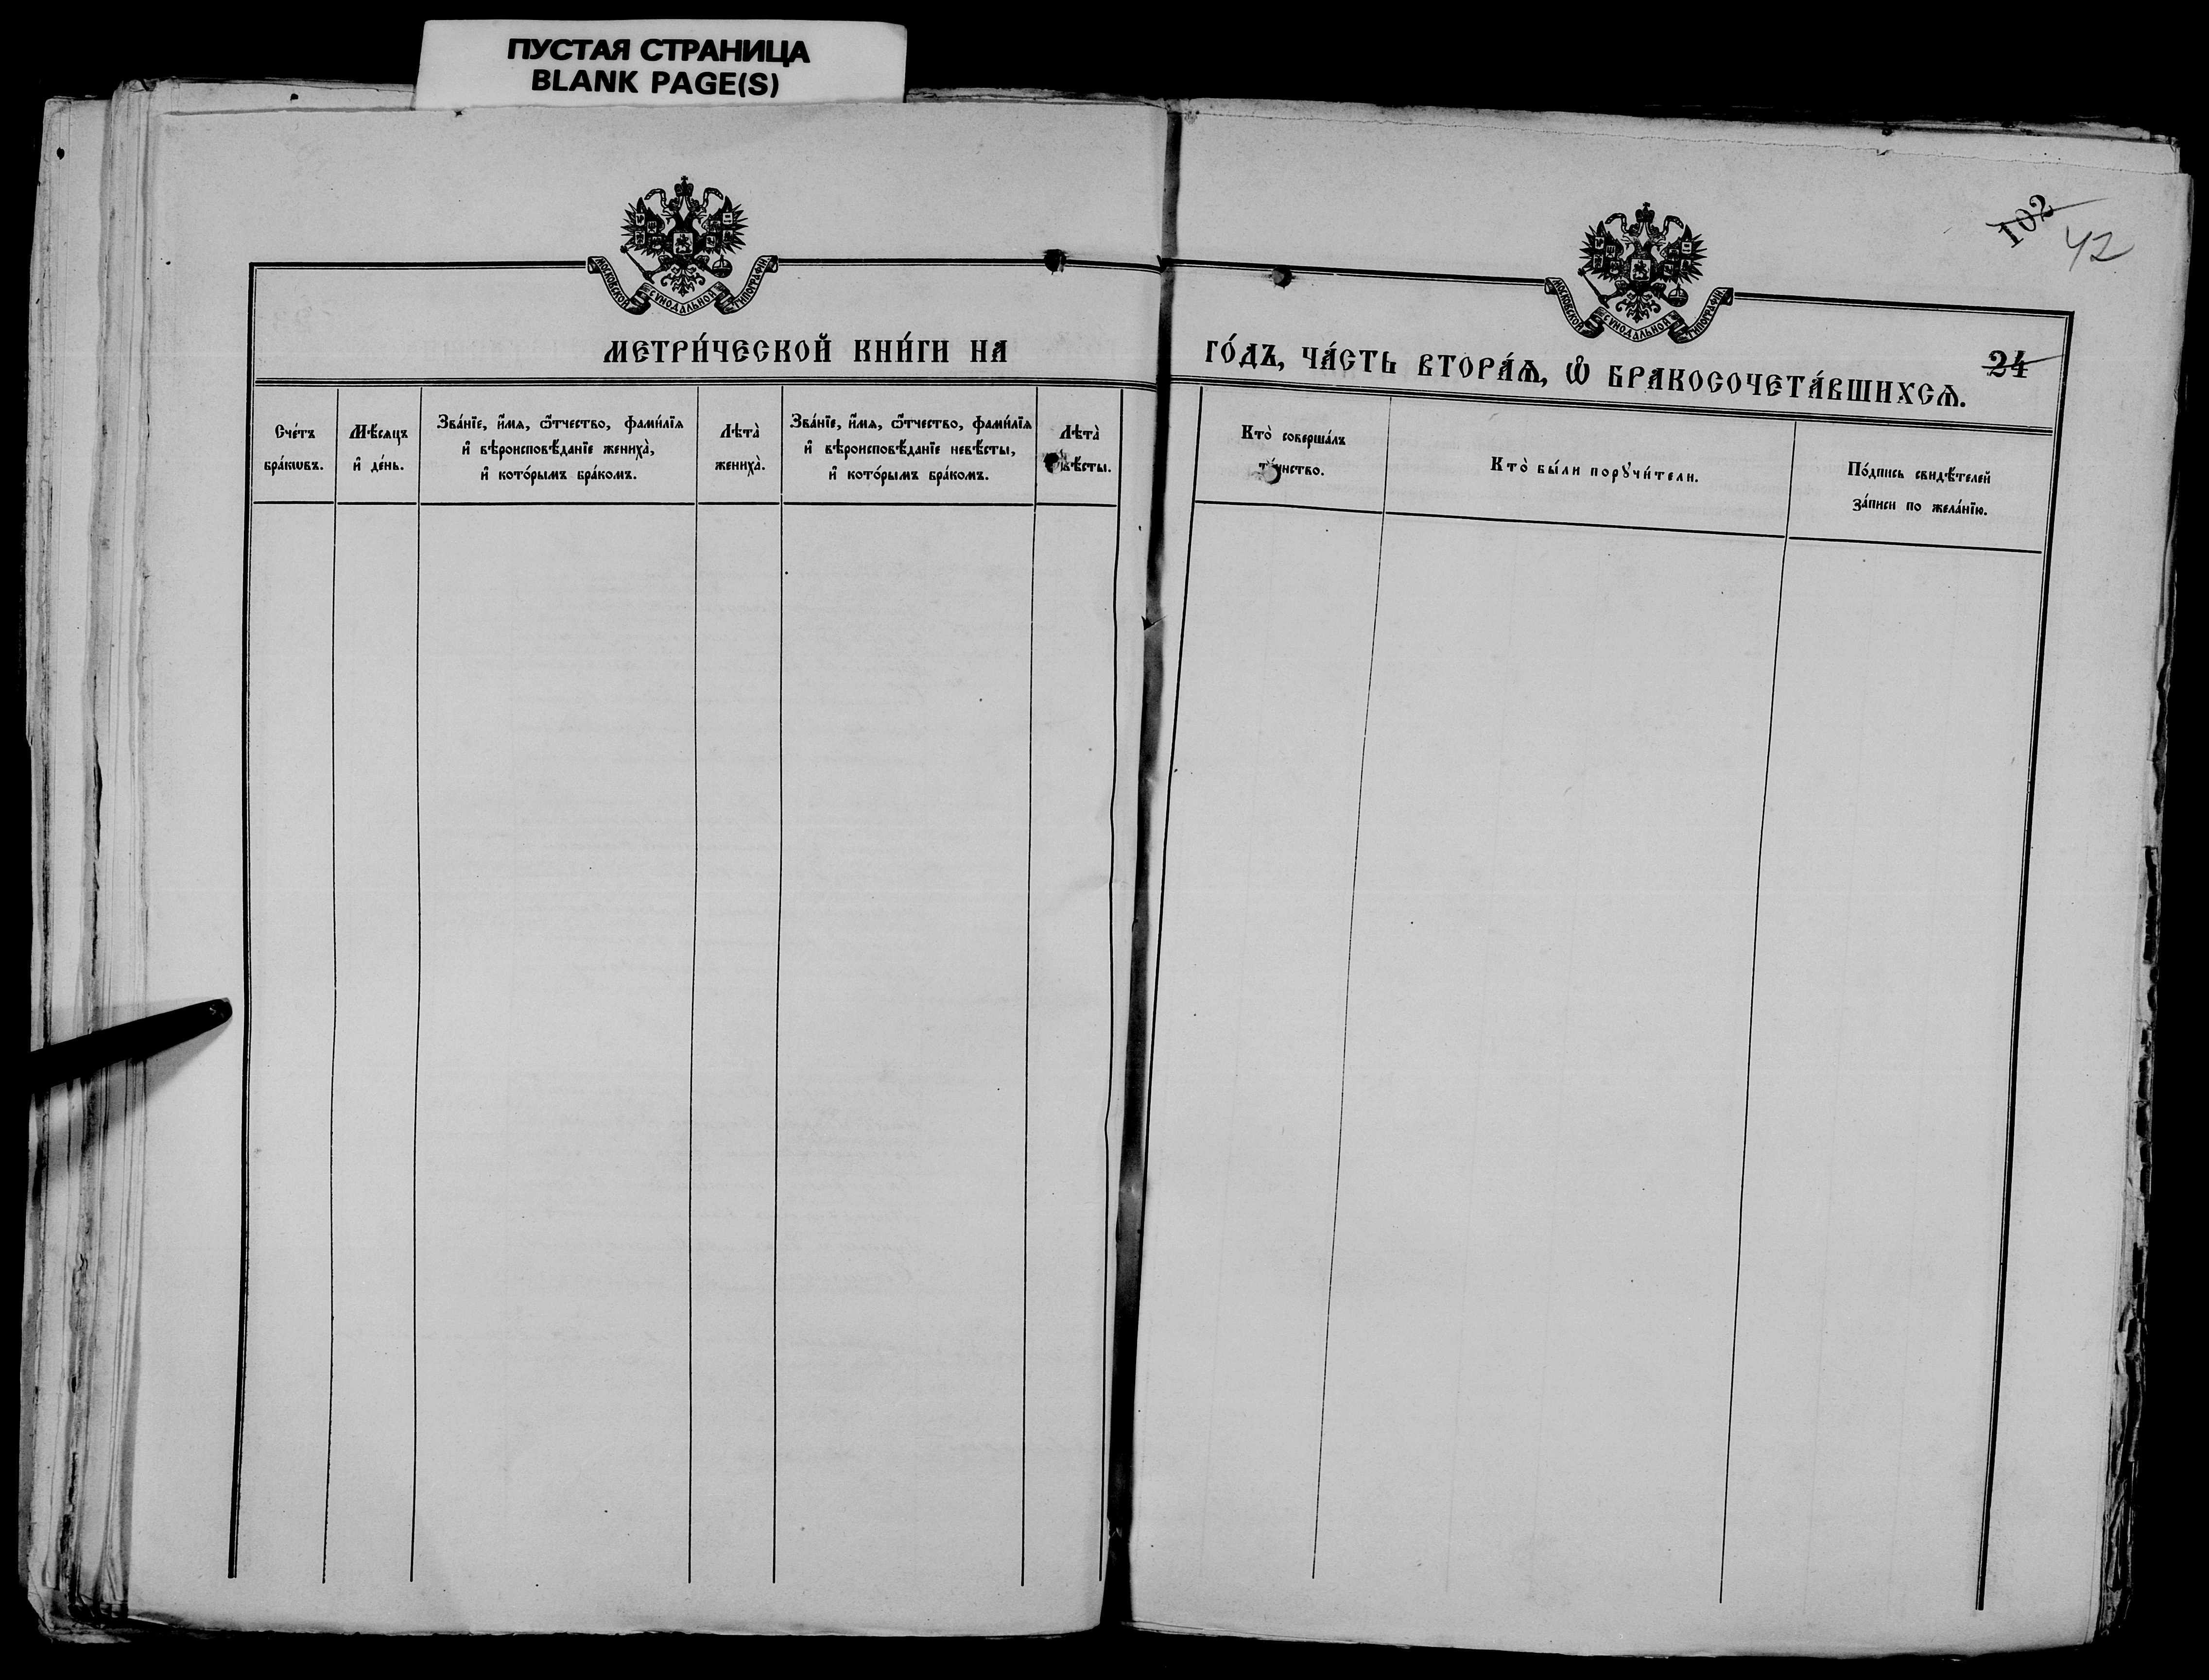 ПУСТАЯ СТРАНИЦА
BLANK PAGE(S)
102
42
МОСКОВСКОЙ СѴНОДАЛЬНОЙ ТИПОГРАФІИ
МОСКОВСКОЙ СѴНОДАЛЬНОЙ ТИПОГРАФІИ
МЕТРИ́ЧЕСКОЙ КНИ́ГИ НА ГО́ДЪ, ЧА́СТЬ ВТОРА́Ѧ, Ѽ БРАКОСОЧЕТА́ВШИХСѦ.
24
Сче́тъ
бра́кѡвъ.
Мѣ́сяцъ
и҆ де́нь.
Зва́нїе, и҆́мя, ѻ҆́тчество, фами́лїя
и҆ вѣроисповѣ́данїе жениха̀,
и҆ кото́рымъ бра́комъ.
Лѣта̀
жениха̀.
Зва́нїе, и҆́мя, ѻ҆́тчество, фами́лїя
и҆ вѣроисповѣ́данїе невѣ́сты,
и҆ кото́рымъ бра́комъ.
Лѣта̀
вѣ́сты.
Кто̀ соверша́лъ
та́инство.
Кто̀ бы́ли порꙋчи́тели.
По́дпись свидѣ́телей
за́писи по жела́нїю.